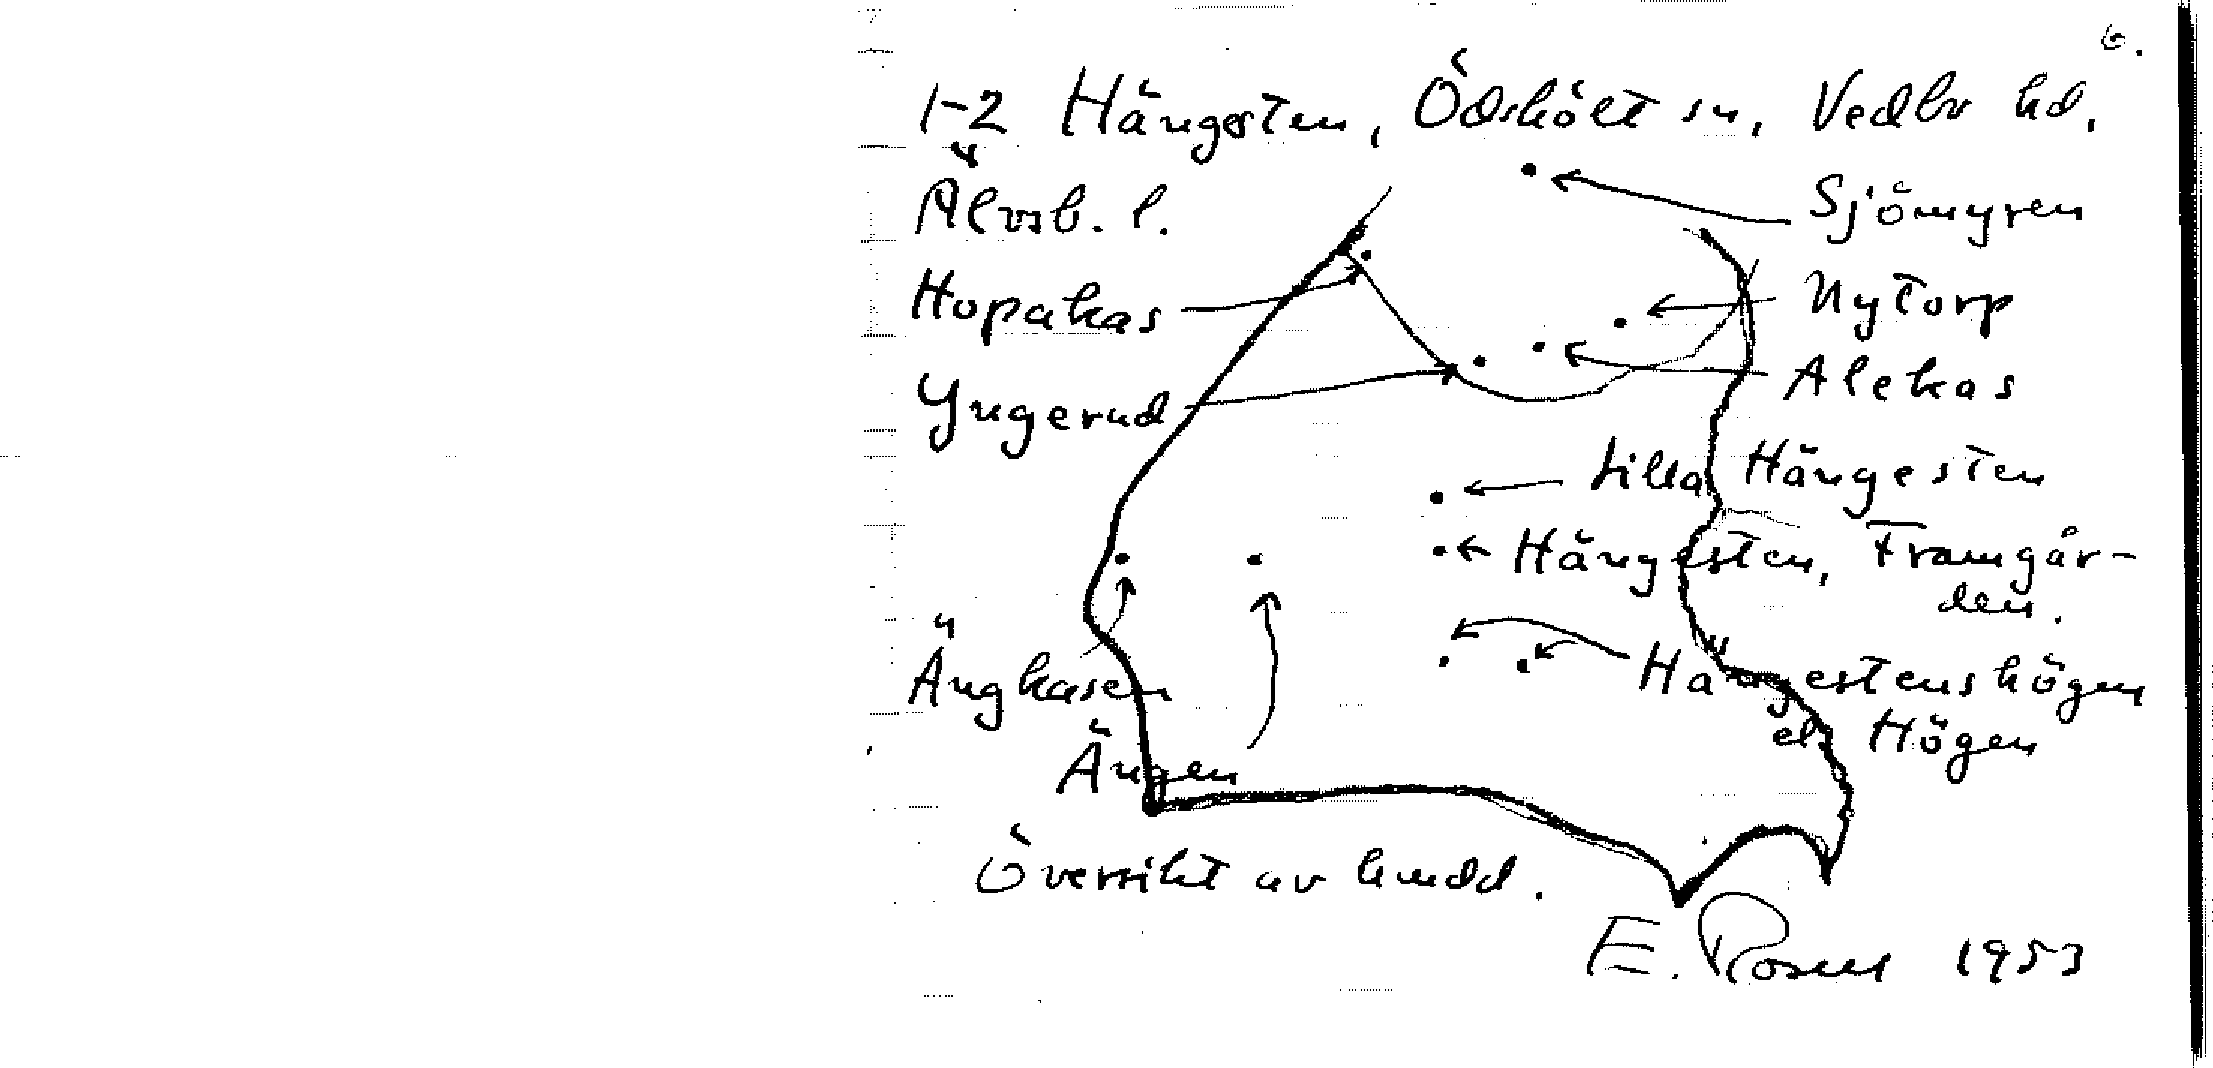 6.
1-2 Hängesten, Ödskölt sn, Vedbo hd,
Älvsb. l.
Sjömyren
Hopakas
Nytorp
Yngerud
Alekas
Lilla Hängesten
Hängesten, Framgår-
den.
Ängkasen
Hängestenshögen
el. Högen
Ängen
Översikt av hmdd.
E. Rosen 1953